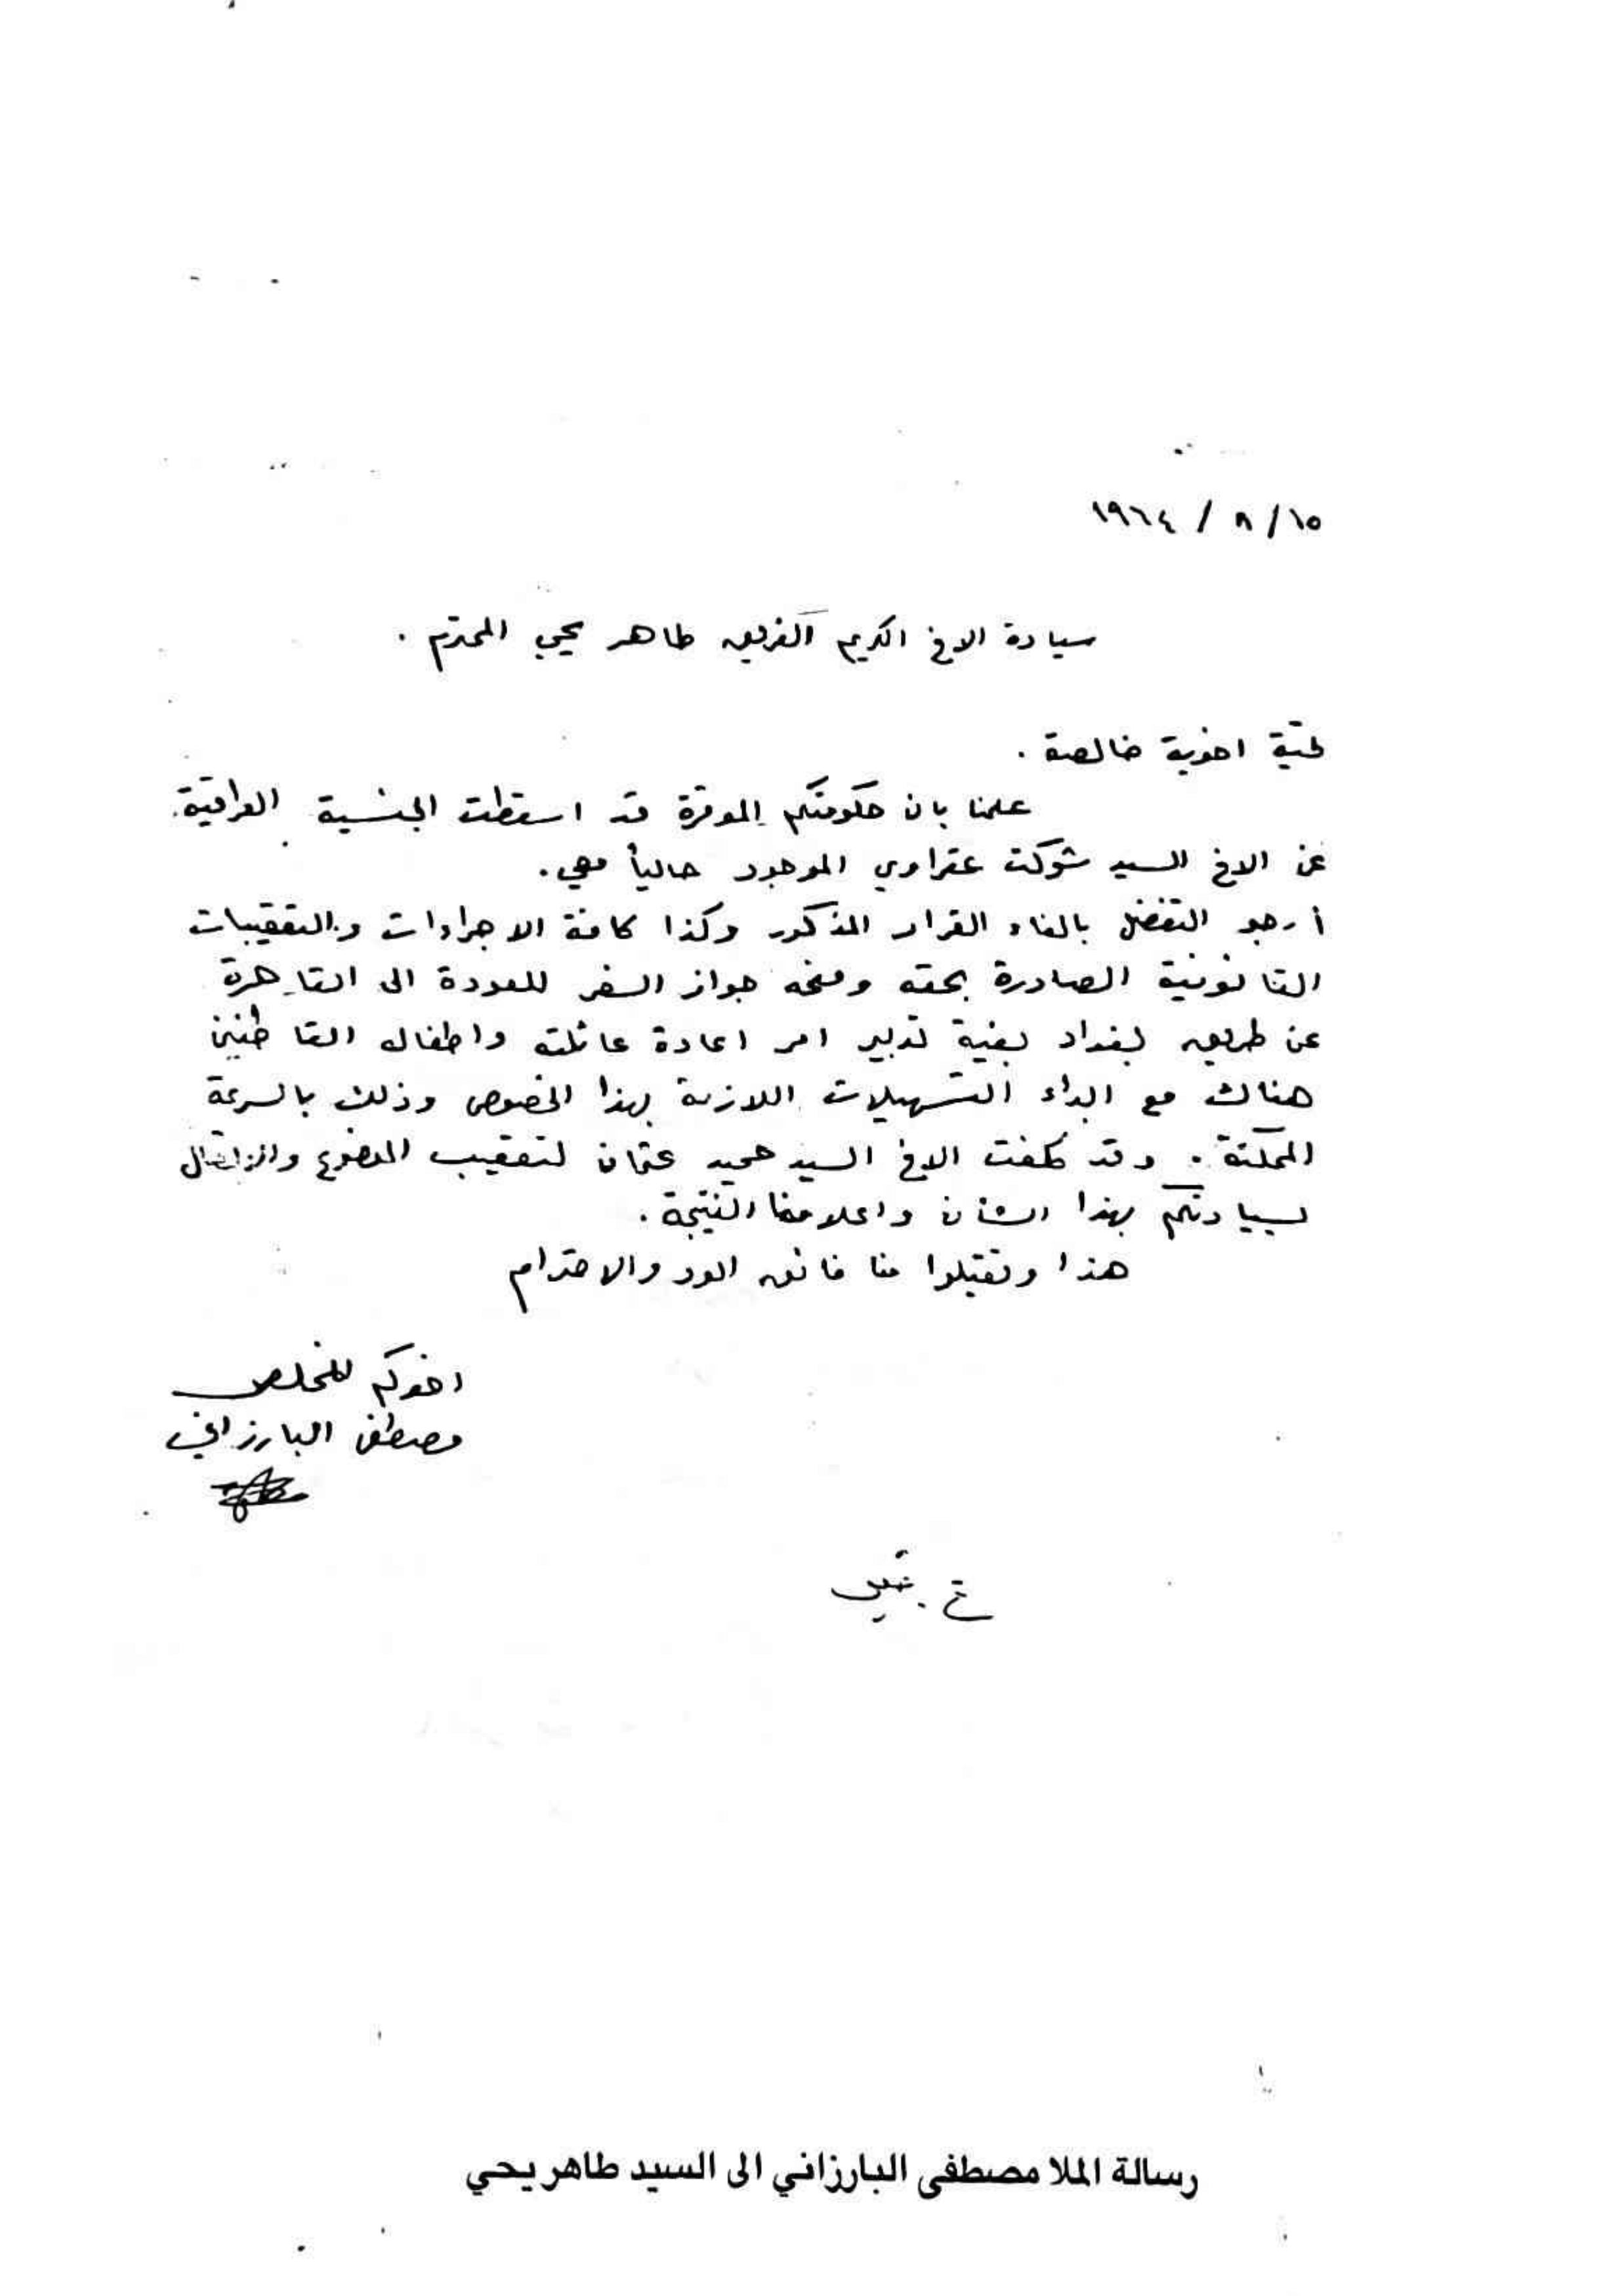 ١٥/ ٨ / ١٩٦٤
سيادة الاخ الكريم الفريق طاهر يحيى المحترم .
تحية اخوية خالصة .
علمنا بان حكومتكم الموقرة قد اسقطت الجنسية العراقية
عن الاخ السيد شوكت عقراوي الموجود حالياً معي .
أرجو التفضل بالغاء القرار المذكور وكذا كافة الاجراءات والتعقيبات
القانونية الصادرة بحقه ومنحه جواز السفر للعودة الى القاهرة
عن طريق بغداد بغية تدبير امر اعادة عائلته واطفاله القاطنين
هناك مع ابداء التسهيلات اللازمة بهذا الخصوص وذلك بالسرعة
الممكنة . وقد كلفت الاخ السيد حميد عثمان لتعقيب الموضوع والاتصال
بسيادتكم بهذا الشأن واعلامنا النتيجة .
هذا وتقبلوا منا فائق الود والاحترام
اخوكم المخلص
مصطفى البارزاني
رسالة الملا مصطفى البارزاني الى السيد طاهر يحي